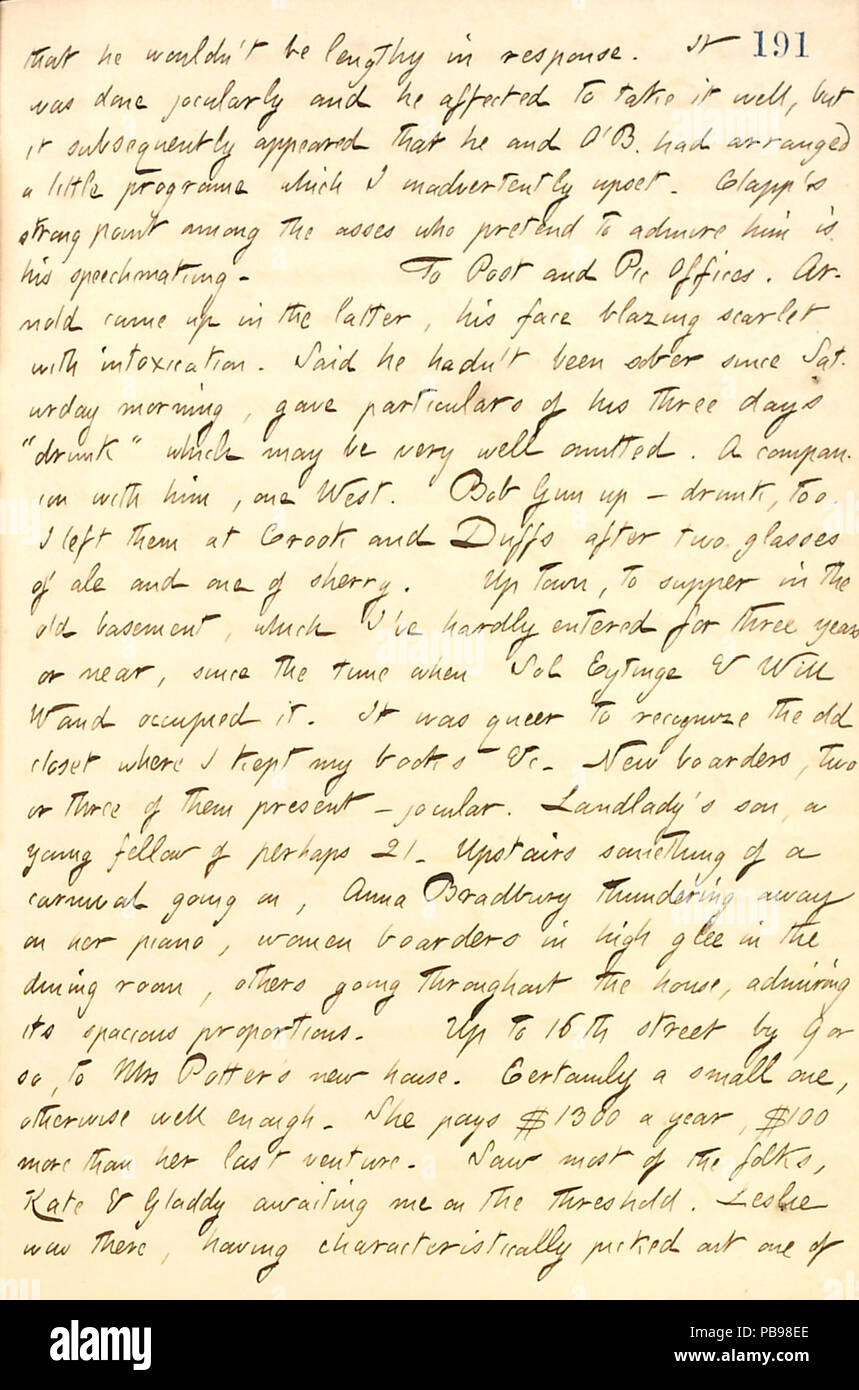 191
that he wouldn't be lengthy in response. It
was done jocularly and he affected to take it well, but
it subsequently appeared that he and O'B. had arranged
a little programe which I inadvertently upset. Clapp's
strong point among the asses who pretend to admire him is
his speechmaking. To Post and Pic Offices. Ar-
nold came up in the latter, his face blazing scarlet
with intoxication. Said he hadn't been sober since Sat-
urday morning, gave particulars of his three days
"drunk" which may be very well omitted. A compan-
ion with him, one West. Bob Gun up — drunk, too.
I left them at Crook and Duffs after two glasses
of ale and one of sherry. Up town, to supper in the
old basement, which I've hardly entered for three years
or near, since the time when Sol Eytinge & Will
Waud occupied it. It was queer to recognize the old
closet where I kept my books &c. New boarders, two
or three of them present — jocular. Landlady's son, a
young fellow of perhaps 21. Upstairs something of a
carnival going on, Anna Bradbury thundering away
on her piano, women boarders in high glee in the
dining room, others going throughout the house, admiring
its spacious proportions. Up to 16th street by 9 or
so, to Mrs Potter's new house. Certainly a small one,
otherwise well enough. She pays $1300 a year, $100
more than her last venture. Saw most of the folks,
Kate & Gladdy awaiting me on the threshold. Leslie
was there, having characteristically picked out one of
alamy
Image ID: PB98EE
www.alamy.com